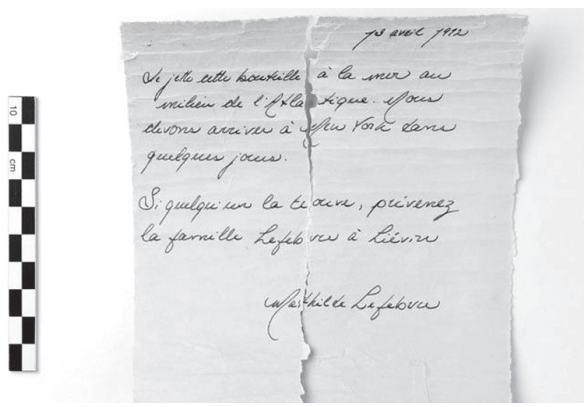 13 avril 1912
Je jette cette bouteille à la mer au
milieu de l'Atlantique. Nous
devons arriver à New York dans
quelques jours.
Si quelqu'un la trouve, prévenez
la famille Lefebvre à Liévin
Mathilde Lefebvre
10
cm